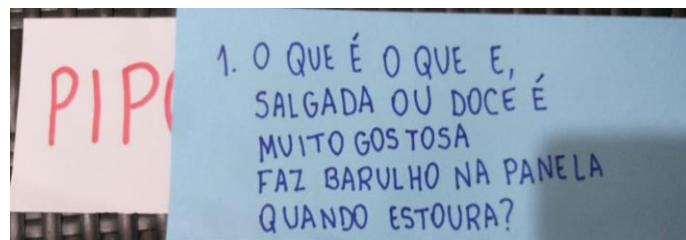 PIP
1. O QUE É O QUE E,
SALGADA OU DOCE É
MUITO GOSTOSA
FAZ BARULHO NA PANELA
QUANDO ESTOURA?